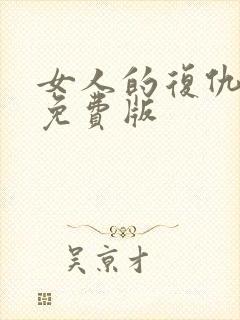 女人的復仇
免費版
吴京才